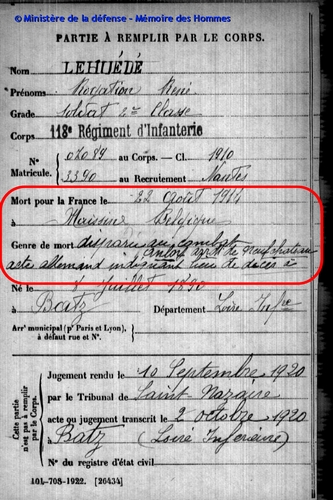 © Ministère de la défense - Mémoire des Hommes
PARTIE À REMPLIR PAR LE CORPS.
Nom LEHUÉDÉ
Prénoms Rogatien René
Grade Soldat 2me Classe
Corps 118e Régiment d'Infanterie
N° 02099 au Corps. — Cl. 1910
Matricule. 3390 au Recrutement Nantes
Mort pour la France le 22 août 1914
à Maissin Belgique
Genre de mort disparu au combat
arrdt de Neufchateau
acte allemand indiquant lieu de décès à
Né le 7 Juillet 1890
à Batz Département Loire Infre
Arrt municipal (pr Paris et Lyon),
à défaut rue et N°.
Cette partie
n'est pas à remplir
par le Corps.
Jugement rendu le 10 Septembre 1920
par le Tribunal de Saint-Nazaire
acte ou jugement transcrit le 2 octobre 1920
à Batz (Loire Inférieure)
N° du registre d'état civil
101-708-1922. [26434]